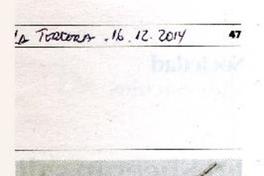 LA TERCERA . 16. 12. 2014 47